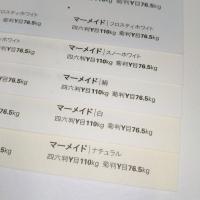 マーメイド|フロスティホワイト
四六判Y目110kg 菊判Y目76.5kg
ホワイト
マーメイド|スノーホワイト
76.5kg
四六判Y目110kg 菊判Y目76.5kg
マーメイド|絹
76.5kg
四六判Y目110kg 菊判Y目76.5kg
マーメイド|白
76.5kg
四六判Y目110kg 菊判Y目76.5kg
マーメイド|ナチュラル
kg
四六判Y目110kg 菊判Y目76.5kg